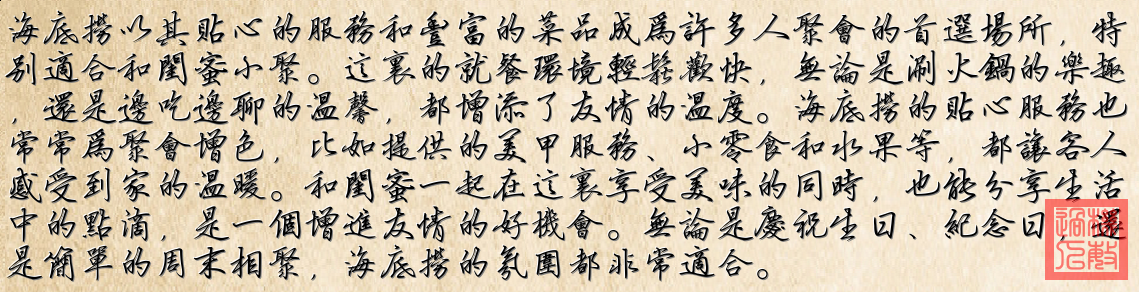 海底撈以其貼心的服務和豐富的菜品成爲許多人聚會的首選場所，特
别適合和閨蜜小聚。這裏的就餐環境輕鬆歡快，無論是涮火鍋的樂趣
，還是邊吃邊聊的温馨，都增添了友情的温度。海底撈的貼心服務也
常常爲聚會增色，比如提供的美甲服務、小零食和水果等，都讓客人
感受到家的温暖。和閨蜜一起在這裏享受美味的同時，也能分享生活
中的點滴，是一個增進友情的好機會。無論是慶祝生日、紀念日，還
是簡單的周末相聚，海底撈的氛圍都非常適合。